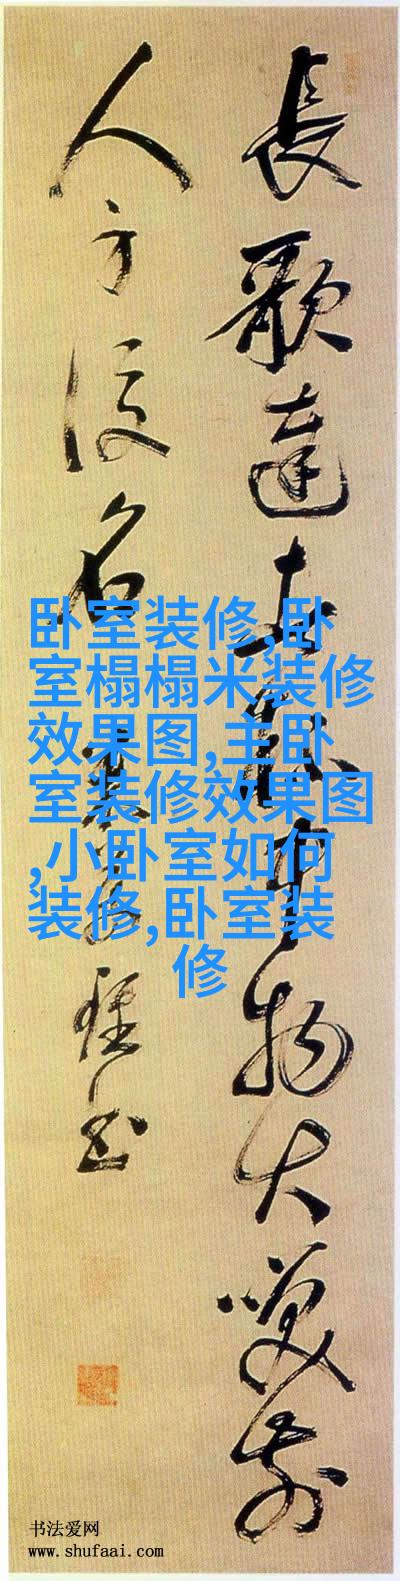 長歌達者中物大笑前
人身後名
書
卧室装修,卧
室榻榻米装修
效果图,主卧
室装修效果图
,小卧室如何
装修,卧室装
修
书法爱网
www.shufaai.com